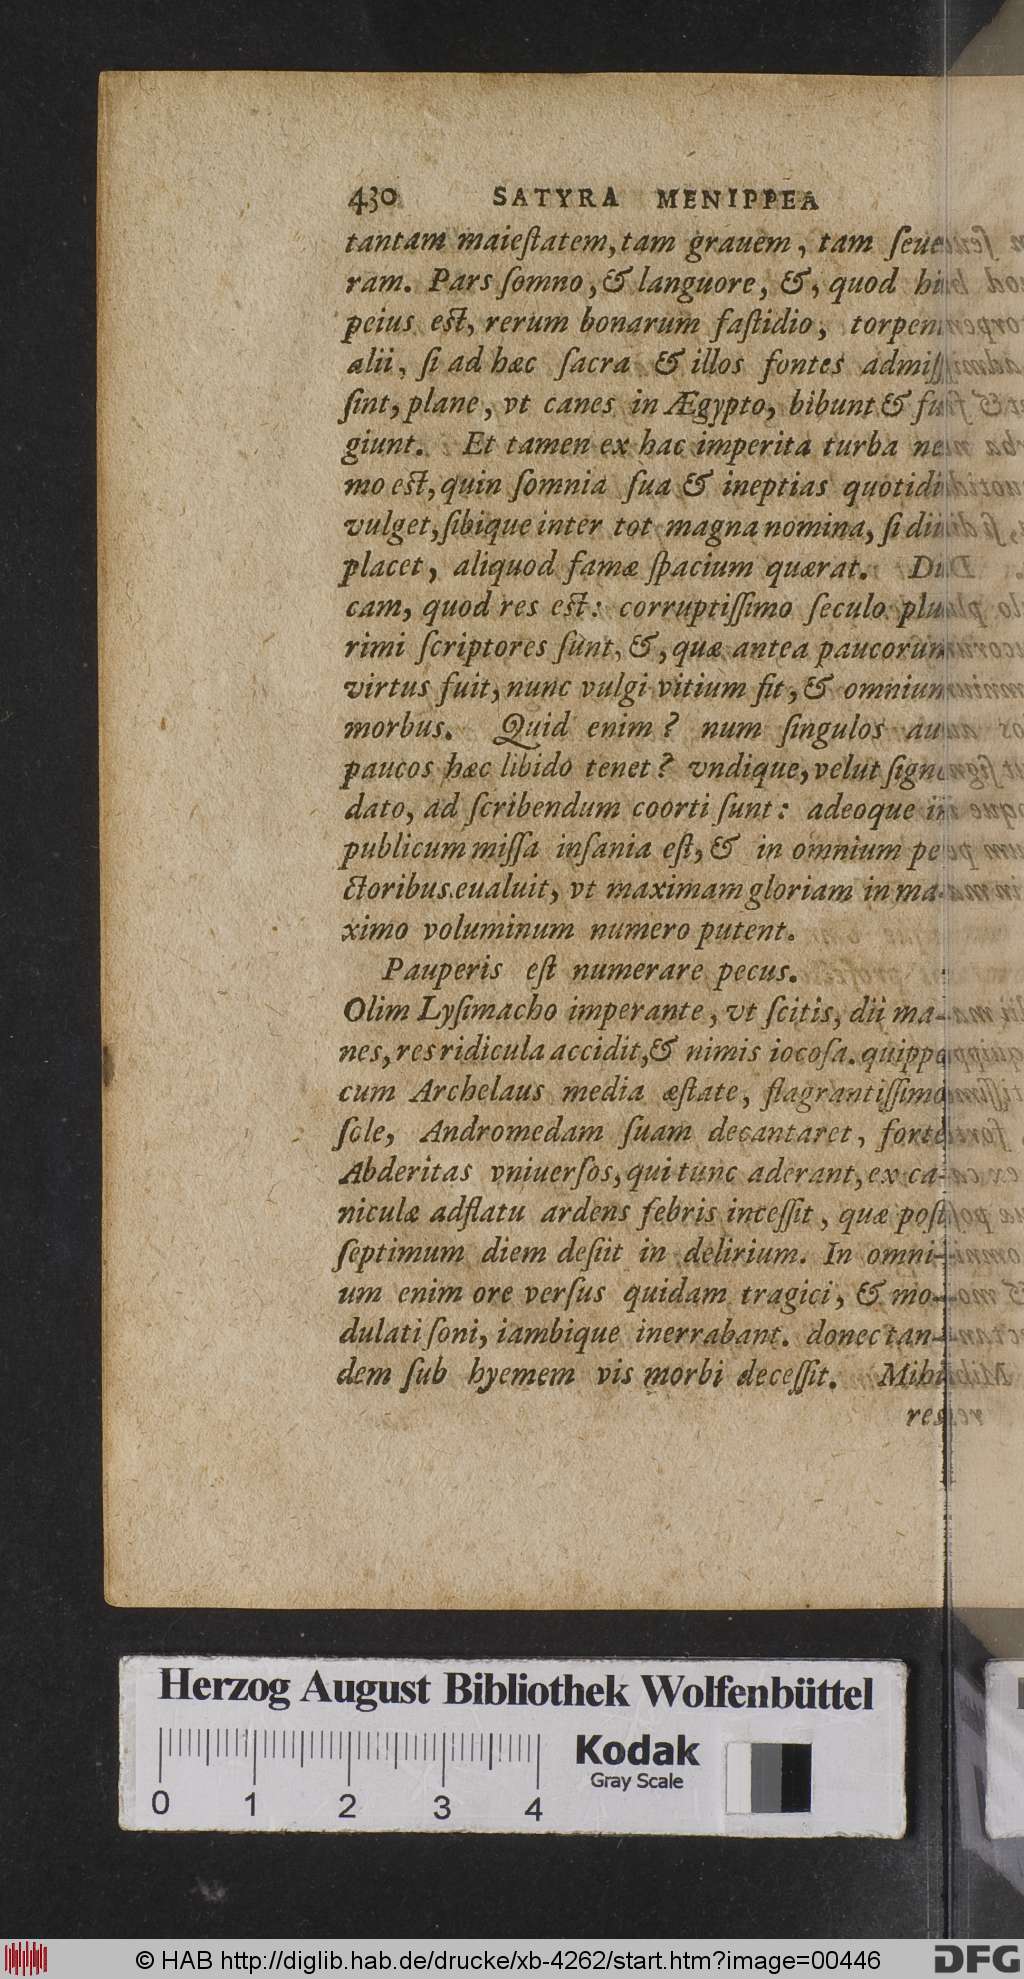 430 SATYRA MENIPPEA
tantam maieſtatem, tam grauem, tam ſeue-
ram. Pars ſomno, & languore, &, quod his
peius eſt, rerum bonarum faſtidio, torpent.
alii, ſi ad hæc ſacra & illos fontes admiſſi
ſint, plane, vt canes in Ægypto, bibunt & fu-
giunt. Et tamen ex hac imperita turba ne-
mo eſt, quin ſomnia ſua & ineptias quotidie
vulget, ſibique inter tot magna nomina, ſi diis
placet, aliquod famæ ſpacium quærat. Di-
cam, quod res eſt: corruptiſſimo ſeculo plu-
rimi ſcriptores ſunt, &, quæ antea paucorum
virtus fuit, nunc vulgi vitium fit, & omnium
morbus. Quid enim? num ſingulos aut
paucos hæc libido tenet? vndique, velut ſigno
dato, ad ſcribendum coorti ſunt: adeoque in
publicum miſſa inſania eſt, & in omnium pe-
ctoribus eualuit, vt maximam gloriam in ma-
ximo voluminum numero putent.
Pauperis eſt numerare pecus.
Olim Lyſimacho imperante, vt ſcitis, dii ma-
nes, res ridicula accidit, & nimis iocoſa. quippe
cum Archelaus media æſtate, flagrantiſſimo
ſole, Andromedam ſuam decantaret, forte
Abderitas vniuerſos, qui tunc aderant, ex ca-
niculæ adflatu ardens febris inceſſit, quæ poſt
ſeptimum diem deſiit in delirium. In omni-
um enim ore verſus quidam tragici, & mo-
dulati ſoni, iambique inerrabant. donec tan-
dem ſub hyemem vis morbi deceſſit. Mihi
res
Herzog August Bibliothek Wolfenbüttel
Kodak
Gray Scale
0 1 2 3 4
© HAB http://diglib.hab.de/drucke/xb-4262/start.htm?image=00446
DFG